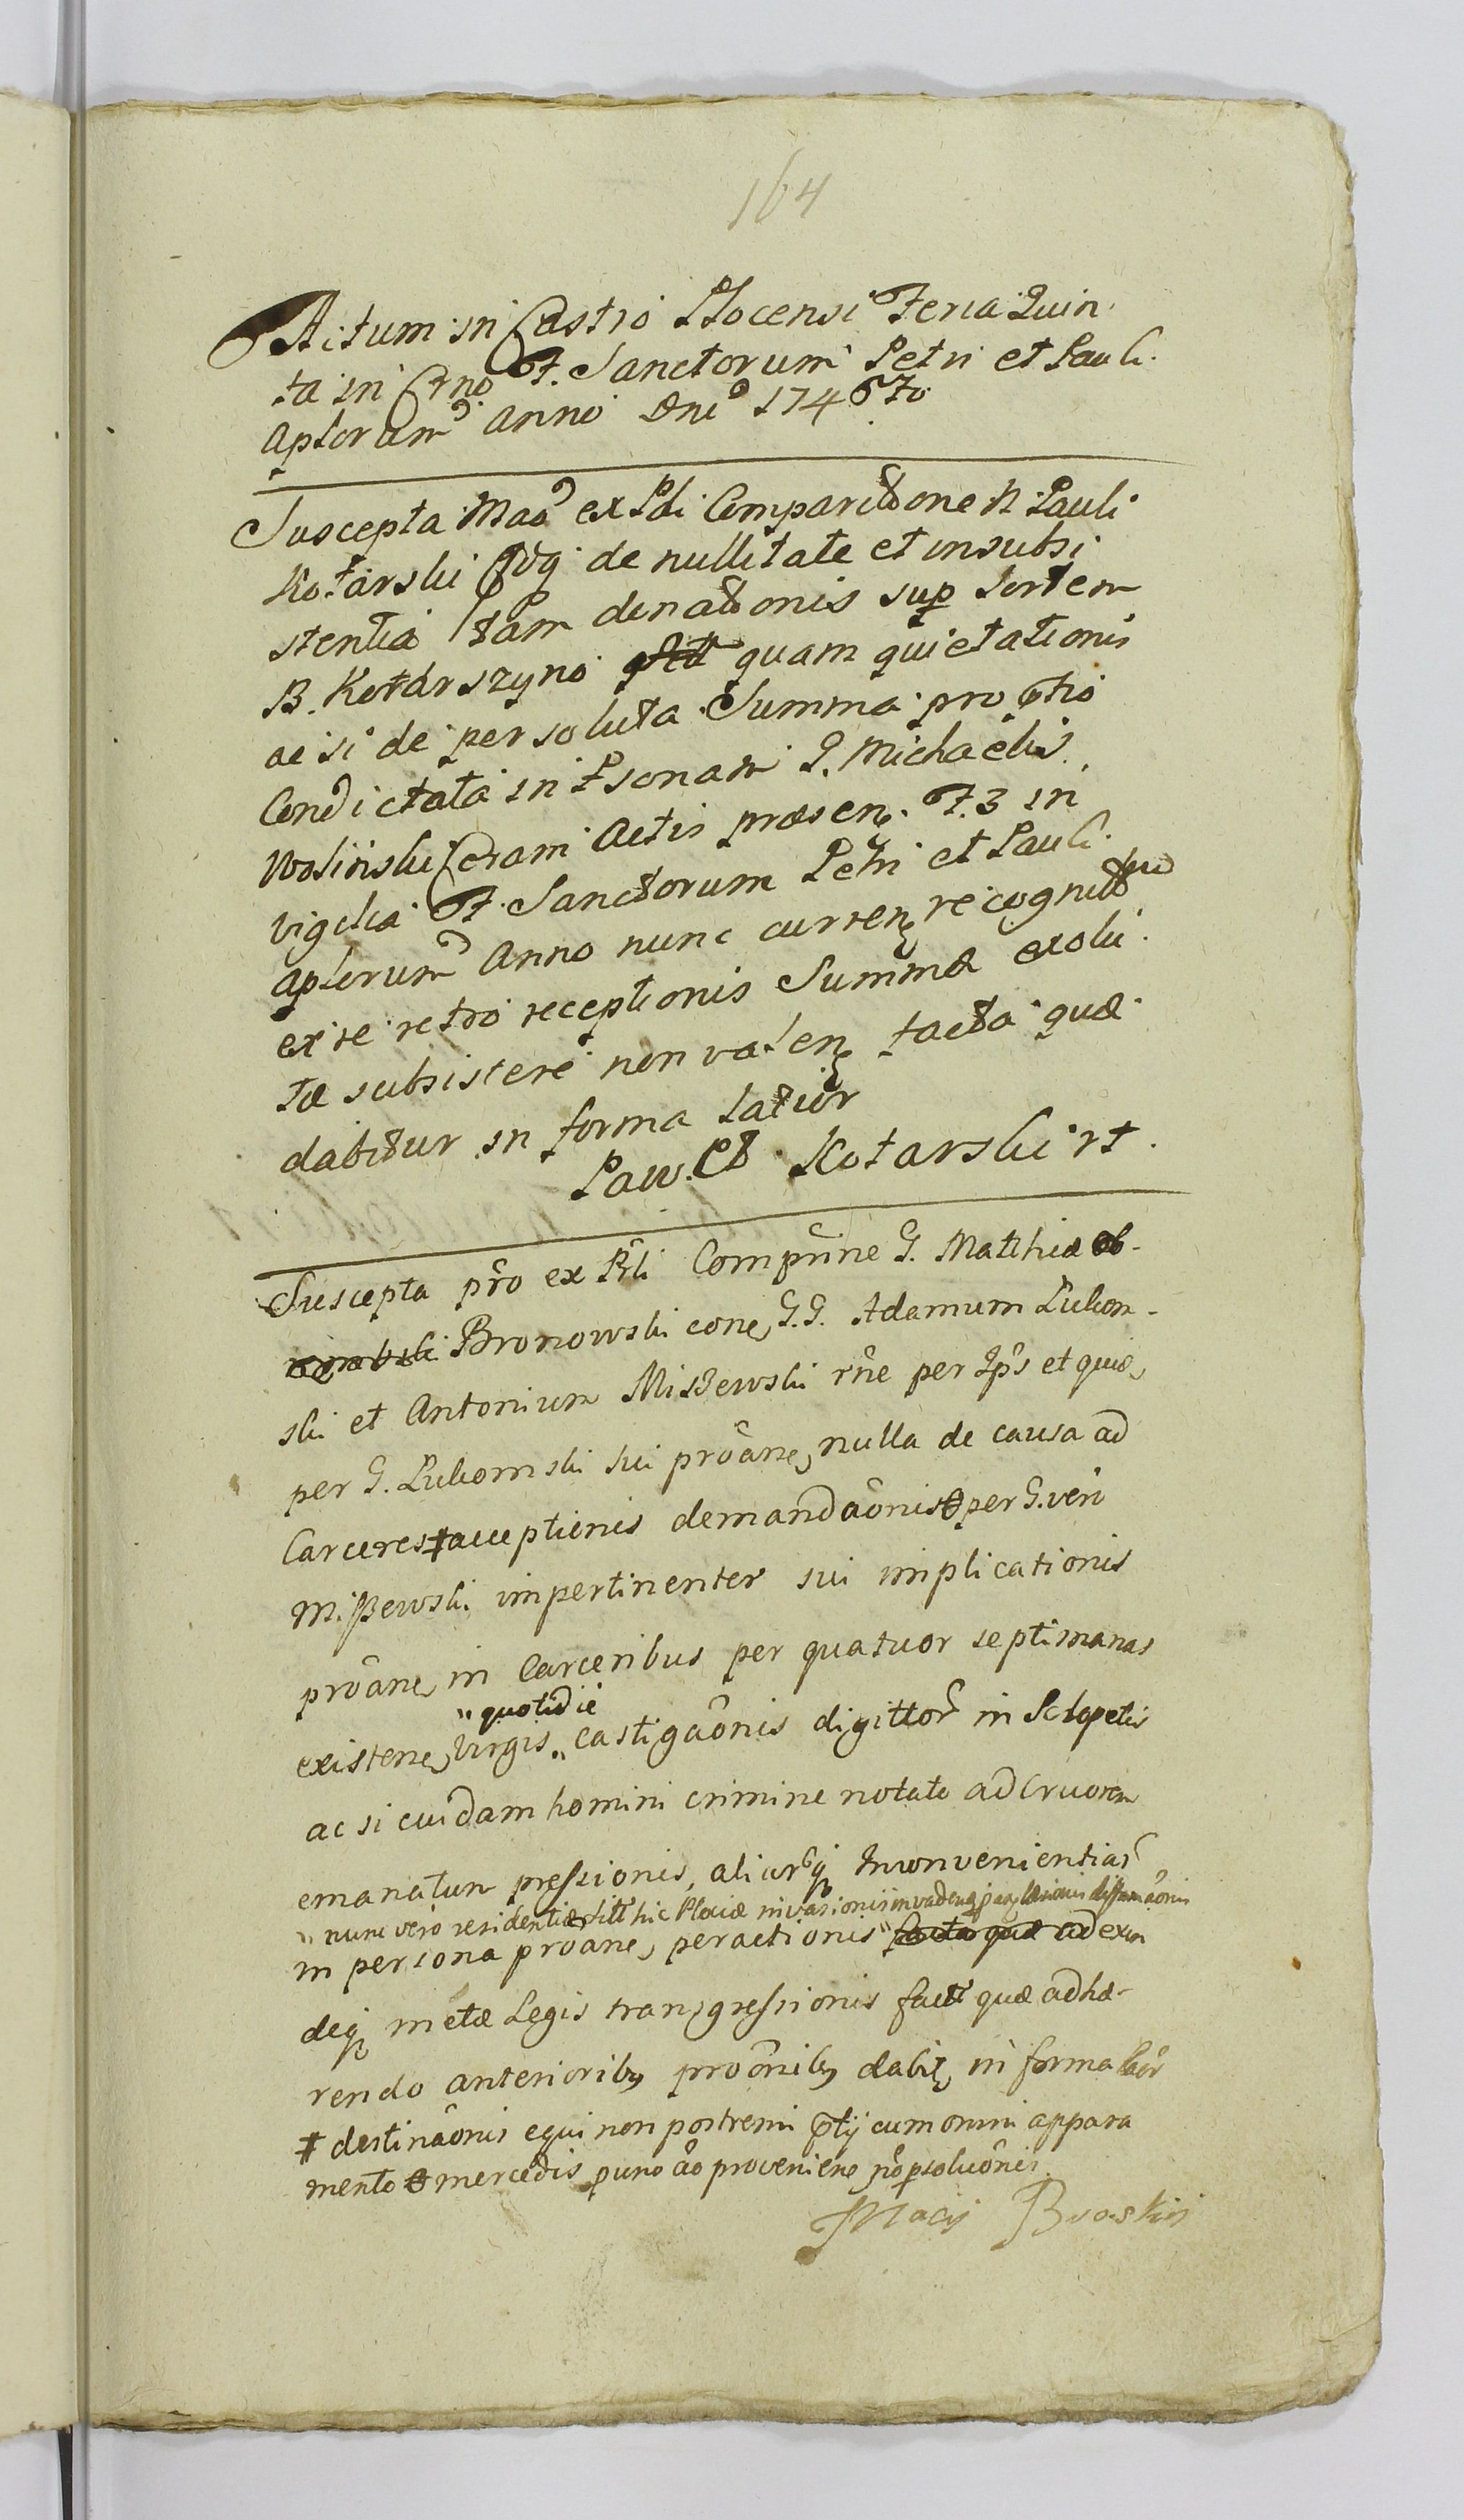 164
Actum in Castro Plocensi Feria Quin
ta in Crno F. Sanctorum Petri et Pauli
Aplorum Anno Dni 1746to
Suscepta Mao ex Pli Comparitione N. Pauli
Kotarski de nullitate et insubsi
stentia tam donationis sup Sortem
B. Kotarszyno quam quietationis
ac si de persoluta Summa pro ptio
Condictata in Psonam G. Michaelis
Wolinski Coram Actis præsen. F. 3 in
vigilia F. Sanctorum Petri et Pauli
Aplorum Anno nunc curren recognit
ex re retro receptionis Summæ exolu
tæ subsistere non valen facta quæ
dabitur in forma latior
Paw. Kotarski rt
Suscepta pro ex Prli Comprine G. Matthiæ ob-
Bronowski cone G.G. Adamum Lukom-
ski et Antonium Miszewski rne per Ips et quid
per G. Lukomski sui proane, nulla de causa ad
Carceres # acceptionis demandaonis per G. vero
Mißewski impertinenter sui implicationis
proane, in Carceribus per quatuor septimanas
" quotidie
existene, Virgis " castigaonis digittor in Sclopetis
ac si cuidam homini crimine notato ad Cruorem
emanatum pressionis, aliarq Inconvenientiar
" nunc vero residentiæ hic Plociæ invasionis læsionis diffamaonis
in persona proane, peractionis " facta quæ ad exin
deq metæ Legis transgressionis fact quæ adhæ-
rendo anterioribg proonibg dabit in forma laor
# destinaonis equi non postremi ptij cum omni appara
mento mercedis p uno ao proveniene no psoluonis
Maciy